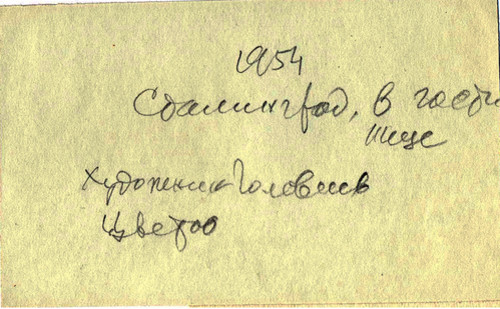 1954
Сталинград, в гости
нице
Художник Головнев
Цветоо